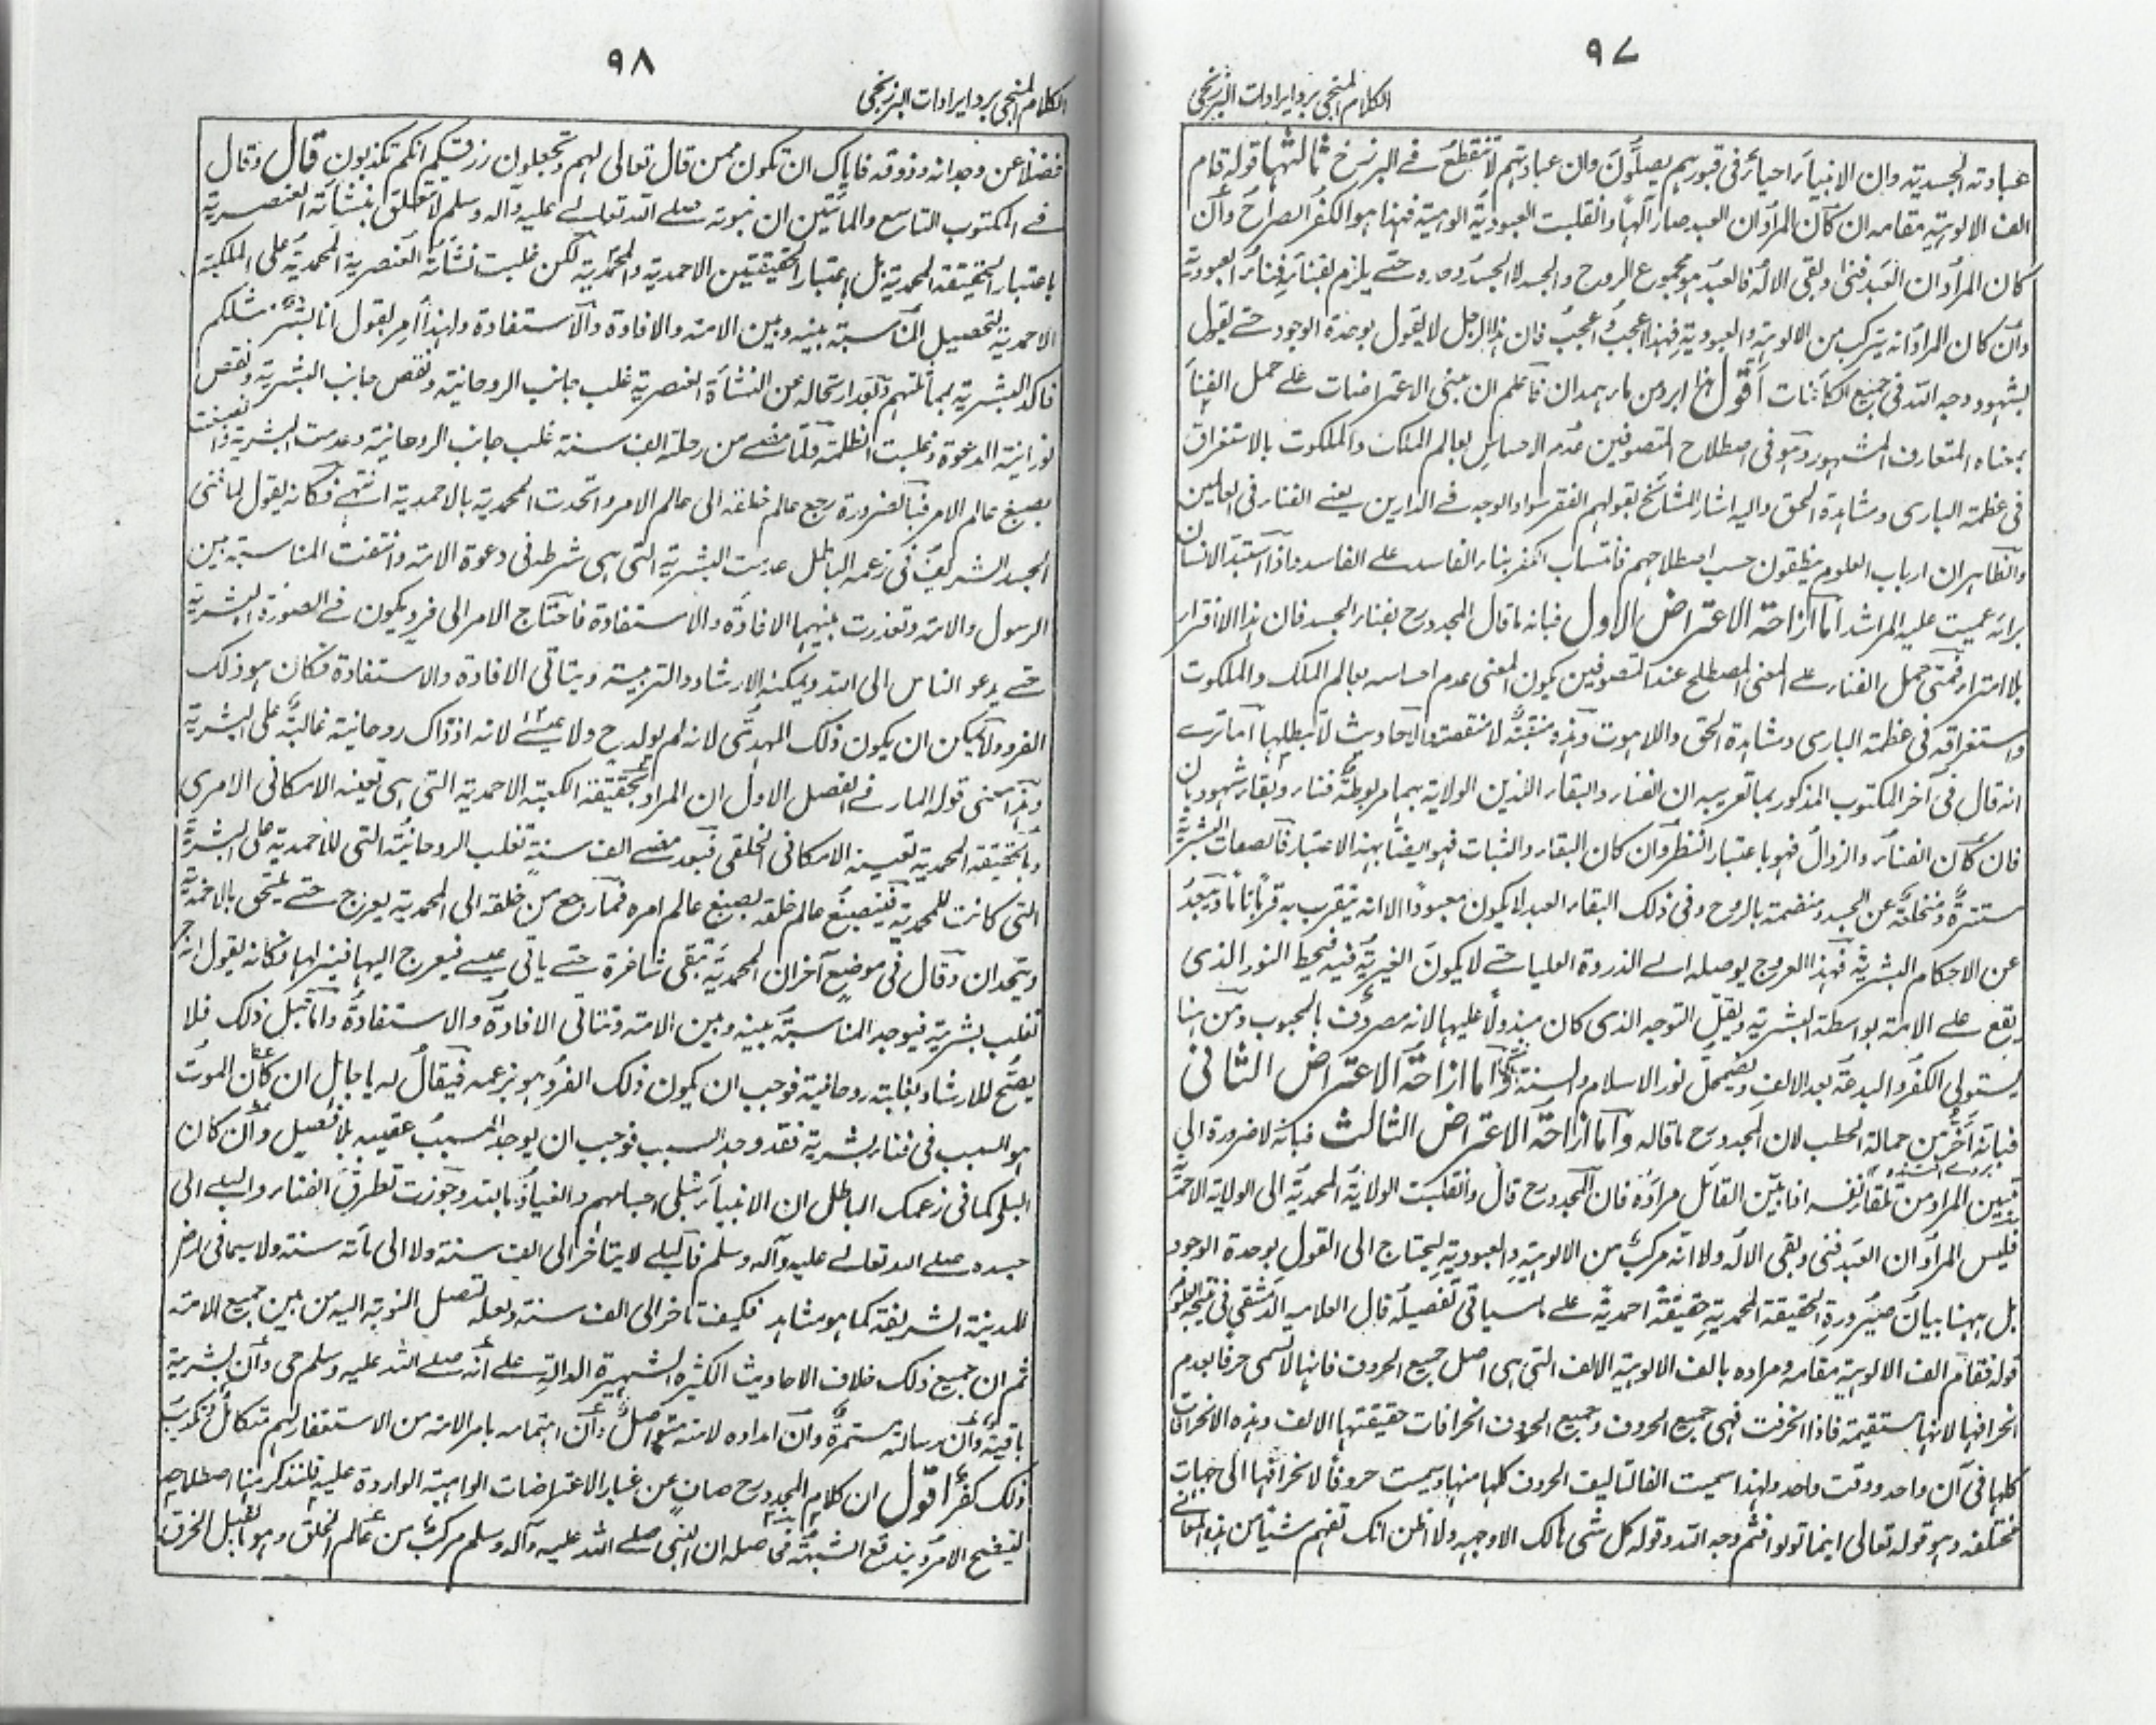 ٩٧
الكلام المنجى برد ايرادات البرزنجى
عبادته الجسدية وان الانبياء احياء فى قبورهم يصلون وان عبادتهم لا تنقطع فى البرزخ ثالثها قوله قام
الف الالوهية مقامه ان كان المراد ان العبد صار آلهاً وانقلبت العبودية الوهية فهذا هو الكفر الصراح وان
كان المراد ان العبد فنى وبقى الاله فالعبد هو مجموع الروح والجسد لا الجسد وحده حتے يلزم بفنائه فناء العبودية
وان كان المراد انه يتركب من الالوهية والعبودية فهذا اعجب واعجب فان هذا الرجل لا يقول بوحدة الوجود حتے يقول
بشهود وجه الله فى جميع الكائنات اقول هذا ابرد من ماء همدان فاعلم ان مبنى الاعتراضات علے حمل الفناء
بمعناه المتعارف المشهور وهو فى اصطلاح المتصوفين عدم الاحساس بعالم الملك والملكوت بالاستغراق
فى عظمة البارى ومشاهدة الحق واليه اشار المشائخ بقولهم الفقر سواد الوجه فے الدارين يعنے الفناء فى العالمين
والظاهر ان ارباب العلوم ينطقون حسب اصطلاحهم فانتساب الكفر بناء الفاسد علے الفاسد واذا استبد الانسان
برائه عميت عليه المراشد اما ازاحة الاعتراض الاول فبانه ما قال المجدد رح بفناء الجسد فان هذا الا افتراء
بلا امتراء فمتى حمل الفناء علے المعنى المصطلح عند المتصوفين يكون المعنى عدم احساسه بعالم الملك والملكوت
واستغراقه فى عظمة البارى ومشاهدة الحق واللاهوت وهذه منقبة لا منقصة والاحاديث لا تبطلها اما ترے
انه قال فى آخر المكتوب المذكور بما تعريبه ان الفناء والبقاء اللذين الولاية بهما مربوطة فناء وبقاء شهوديان
فان كان الفناء والزوال فهو باعتبار النظر وان كان البقاء والثبات فهو ايضًا بهذا الاعتبار فالصفات البشرية
مستترة ومنخلعة عن الجسد ومنضمة بالروح وفى ذلك البقاء العبد لا يكون معبودًا الا انه يتقرب به قربًا تامًا ويبعد
عن الاحكام البشرية فهذا العروج يوصله الے الذروة العليا حتے لا يكون الغيرية فيه فيحط النور الذى
يقع علے الامة بواسطة البشرية ويقل التوجه الذى كان مبذولًا عليها لانه مصروف بالمحبوب ومن هنا
يستولى الكفر والبدعة بعد الالف ويضمحل نور الاسلام والسنة واما ازاحة الاعتراض الثانى
فبانه اخرى من حمالة الحطب لان المجدد رح ما قاله واما ازاحة الاعتراض الثالث فبانه لا ضرورة الى
تبيين المراد من تلقاء نفسه اذا بين القائل مراده فان المجدد رح قال وانقلبت الولاية المحمدية الى الولاية الاحمدية
فليس المراد ان العبد فنى وبقى الاله ولا انه مركب من الالوهية والعبودية ليحتاج الى القول بوحدة الوجود
بل ههنا بيان صيرورة الحقيقة المحمدية حقيقة احمدية علے ما سياتى تفصيله قال العلامه الدمشقى فى نتيجة العلوم
قوله فقام الف الالوهية مقامه ومراده بالف الالوهية الالف التى هى اصل جميع الحروف فانها لا تسمى حرفا بعدم
انحرافها لانها مستقيمة فاذا انحرفت فهى جميع الحروف وجميع الحروف انحرافات حقيقتها الالف وهذه الانحرافات
كلها فى آن واحد ووقت واحد ولهذا سميت الفا لتاليف الحروف كلها منها وسميت حروفًا لانحرافها الى جهات
مختلفه وهو قوله تعالى اينما تولوا فثم وجه الله وقوله كل شى هالك الا وجهه ولا اظن انك تفهم شيئا من هذه المعانے
٩٨
الكلام المنجى برد ايرادات البرزنجى
فضلًا عن وجدانه وذوقه فاياك ان تكون ممن قال تعالى لهم وتجعلون رزقكم انكم تكذبون قال وقال
فے المكتوب التاسع والمائتين ان نبوته صلے الله تعالے عليه وآله وسلم لا تتعلق بنشأته العنصرية
باعتبار الحقيقة المحمدية بل باعتبار الحقيقتين الاحمدية والمحمدية لكن غلبت نشأته العنصرية المحمدية على الملكية
الاحمدية لتحصيل المناسبة بينه وبين الامة والافادة والاستفادة ولهذا أمر بقول انا بشر مثلكم
فاكد البشرية بمماثلتهم وبعد ارتحاله من النشأة العنصرية غلب جانب الروحانية ونقص جانب البشرية ونقص
نورانية الدعوة وغلبت الظلمة فلما مضے من رحلته الف سنة غلب جانب الروحانية وعدمت البشرية وانصبغت
بصبغ عالم الامر فبالضرورة رجع عالم خلقه الى عالم الامر واتحدت المحمدية بالاحمدية انتهے فكانه يقول لما فنى
الجسد الشريف فى زعمه الباطل عدمت البشرية التى هى شرط فى دعوة الامة وانتفت المناسبة بين
الرسول والامة وتعذرت بينهما الافادة والاستفادة فاحتاج الامر الى فرد يكون فے الصورة البشرية
حتے يدعو الناس الى الله ويمكنه الارشاد والتربية ويتاتى الافادة والاستفادة فكان هو ذلك
الفرد ولا يمكن ان يكون ذلك المهدى لانه لم يولد ح ولا عيسے لانه اذ ذاك روحانية غالبة على البشرية
وهذا معنى قوله المار فے الفصل الاول ان المراد بحقيقة الكعبة الاحمدية التى هى تعينه الامكانى الامرى
وبالحقيقة المحمدية تعينه الامكانى الخلقى فبعد مضے الف سنة تغلب الروحانية التى للاحمدية على البشرية
التى كانت للمحمدية فتنصبغ عالم خلقه بصبغ عالم امره فما رجع من خلقه الى المحمدية يعرج حتے يلتحق بالاحمدية
ويتحدان وقال فى موضع آخر ان المحمدية تبقى شاغرة حتے ياتى عيسے فيعرج اليها فينزلها فكانه يقول انه ح
تغلب بشرية فيوجد المناسبة بينه وبين الامة وتتاتى الافادة والاستفادة واما قبل ذلك فلا
يصلح للارشاد بغلبة روحانية فوجب ان يكون ذلك الفرد هو بزعمه فيقال له يا جاهل ان كان الموت
هو السبب فى فناء بشرية فقد وجد السبب فوجب ان يوجد المسبب عقيبه بلا تفصيل وان كان
البلى كما فى زعمك الباطل ان الانبياء تبلى اجسامهم والعياذ بالله وجوزت تطرق الفناء والبلے الى
جسده صلے الله تعالے عليه وآله وسلم فالبلے لا يتاخر الى الف سنة ولا الى مأته سنة ولا سيما فى ارض
المدينة الشريفة كما هو مشاهد فكيف تاخر الى الف سنة ولعله لتصل النوبة اليه من بين جميع الامة
ثم ان جميع ذلك خلاف الاحاديث الكثيرة الشهيرة الدالة علے انه صلے الله عليه وسلم حى وان بشرية
باقية وان رسالته مستمرة وان امداده لامته متواصل وان اهتمامه بامر الامة من الاستغفار لهم متكامل وتكذيب
ذلك كفر اقول ان كلام المجدد رح صاف عن غبار الاعتراضات الواهية الواردة عليه فلنذكر هنا اصطلاحهم
ليتضح الامر ويندفع الشبهة فحاصله ان النبى صلے الله عليه وآله وسلم مركب من عالم الخلق وهو ما يقبل الخرق